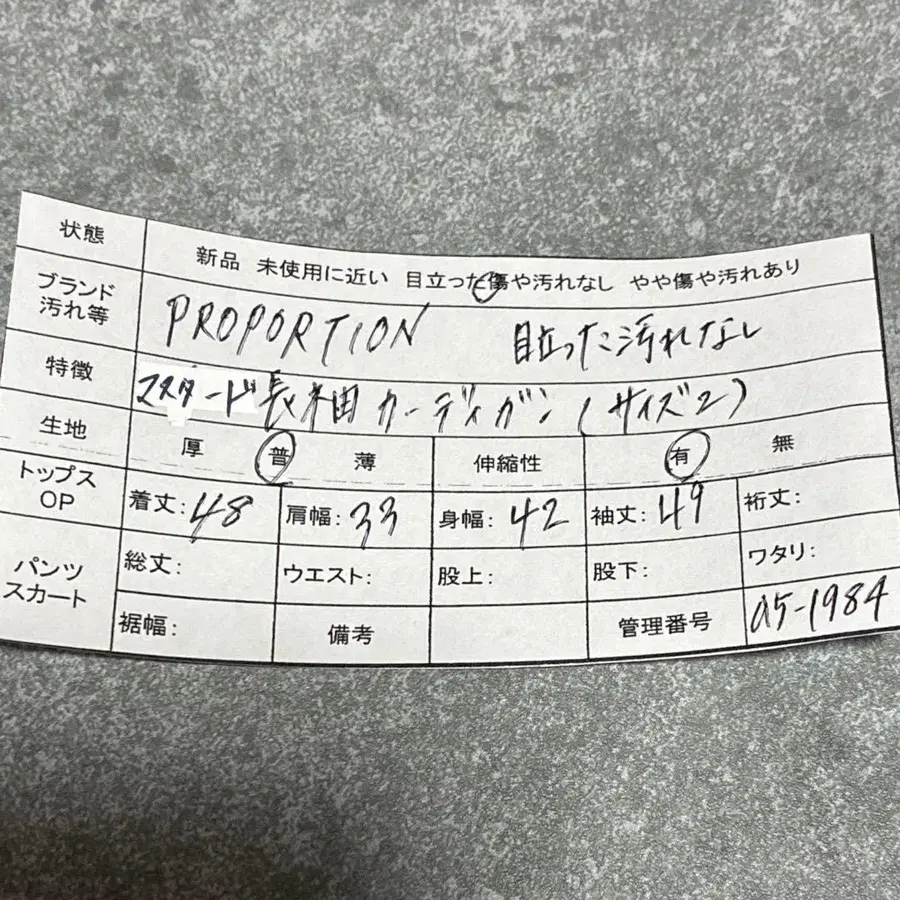 状態 新品 未使用に近い 目立った傷や汚れなし やや傷や汚れあり
ブランド 汚れ等 PROPORTION 目立った汚れなし
特徴 マスタード長袖カーディガン(サイズ2)
生地 厚 普 薄 伸縮性 有 無
トップス OP 着丈:48 肩幅:33 身幅:42 袖丈:49 裄丈:
パンツ スカート 総丈: ウエスト: 股上: 股下: ワタリ:
裾幅: 備考 管理番号 a5-1984